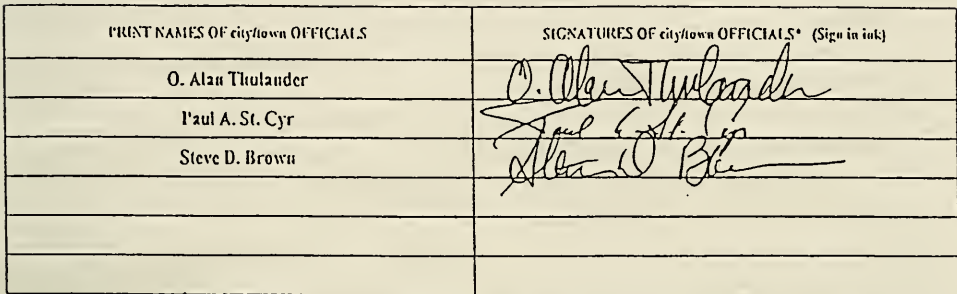 PRINT NAMES OF city/town OFFICIALS SIGNATURES OF city/town OFFICIALS* (Sign in ink)
O. Alan Thulander O. Alan Thulander
Paul A. St. Cyr Paul St. Cyr
Steve D. Brown D